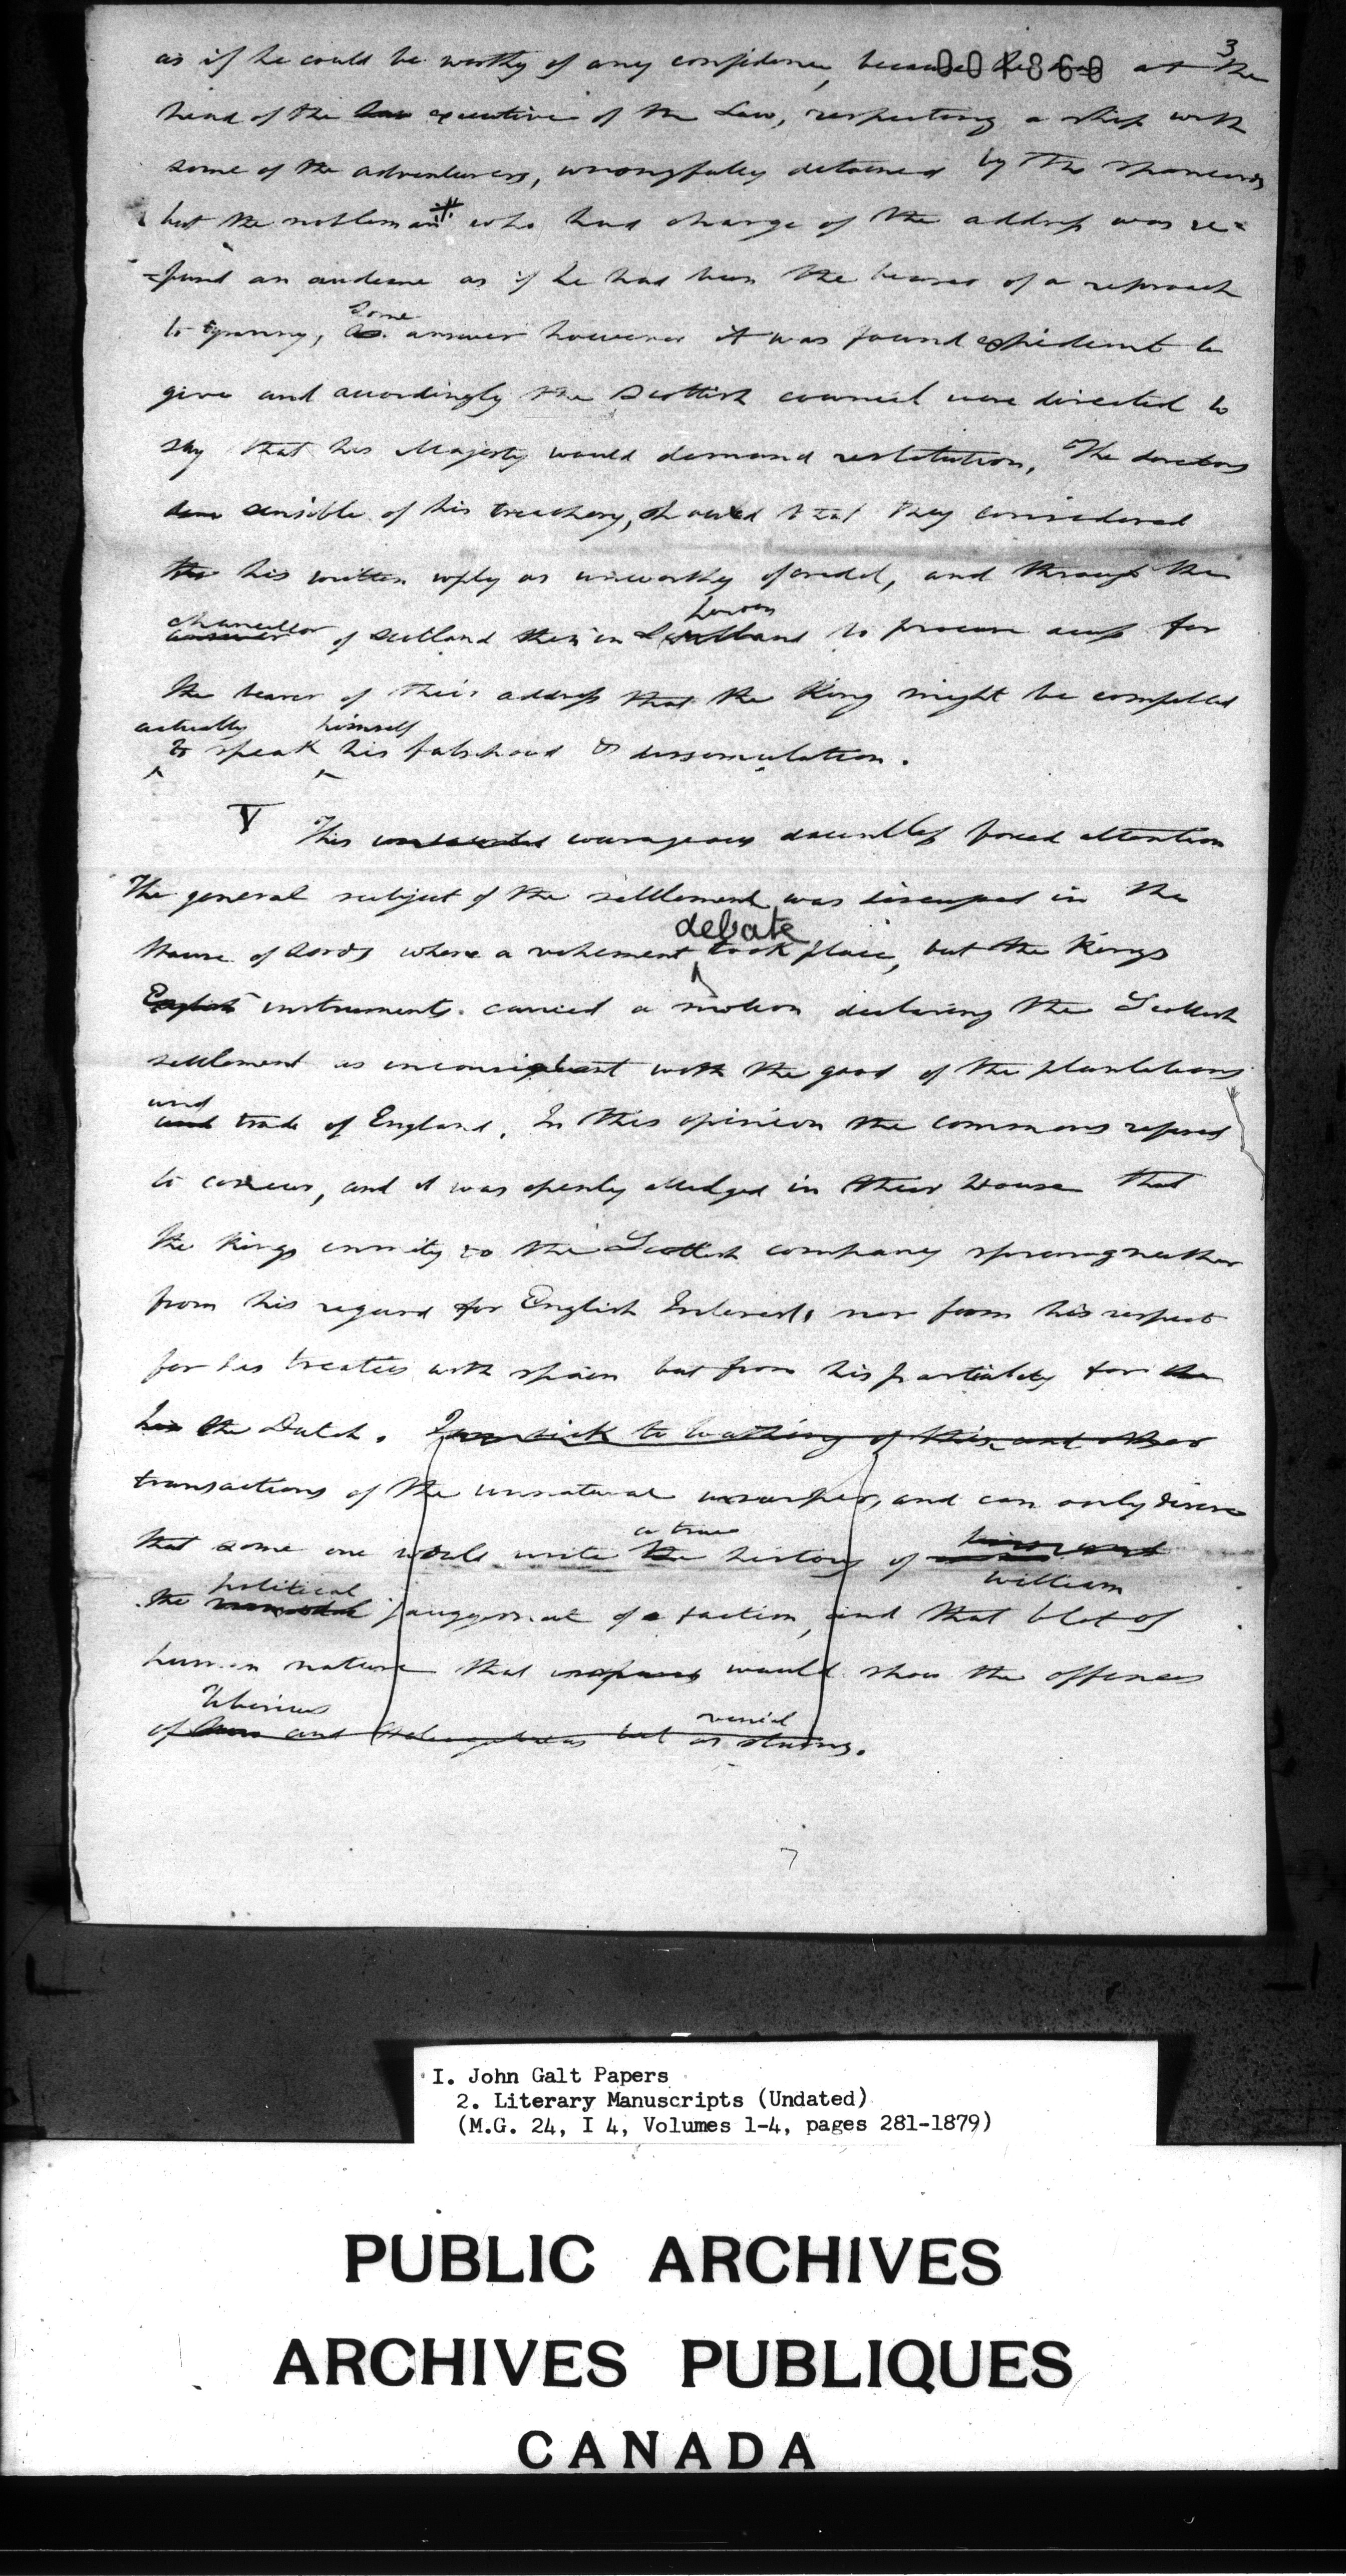 3
001860
as if he could be worthy of any confidence, because he was at the
head of the law executive of the Law, respecting a ship with
some of the adventurers, wrongfully detained by the Spaniards
but the nobleman # who had charge of the address was re=
=fused an audience as if he had been the bearer of a reproach
some
to tyranny, answer however it was found expedient to
give and accordingly the Scottish council were directed to
say that his Majesty would demand restitution, The directors
sensible of his treachery, showed that they considered
the his written reply as unworthy of credit, and through the
chancellor London
answer of Scotland then in Scotland to procure access for
the bearer of their address that the King might be compelled
actually himself
to speak his falsehood & dissimulation.
V This courageous dauntless forced attention
The general subject of the settlement was discussed in the
debate
House of Lords where a vehement took place, but the Kings
English instruments carried a motion declaring the Scottish
settlement as inconsistent with the good of the plantations
and
and trade of England. In this opinion the commons refused
to concur, and it was openly alledged in their House that
the Kings enmity to the Scottish company sprung neither
from his regard for English Interests nor from his respect
for his treaties with Spain but from his partiality for the
his the Dutch. I am sick to loathing of this and other
transactions of the unnatural usurper, and can only desire
a true
that some one would write the history of
political William
the juggernaut of a faction, and that blot of
human nature that would show the offences
Tiberius venial
of and but as
I. John Galt Papers
2. Literary Manuscripts (Undated)
(M.G. 24, I 4, Volumes 1-4, pages 281-1879)
PUBLIC ARCHIVES
ARCHIVES PUBLIQUES
CANADA